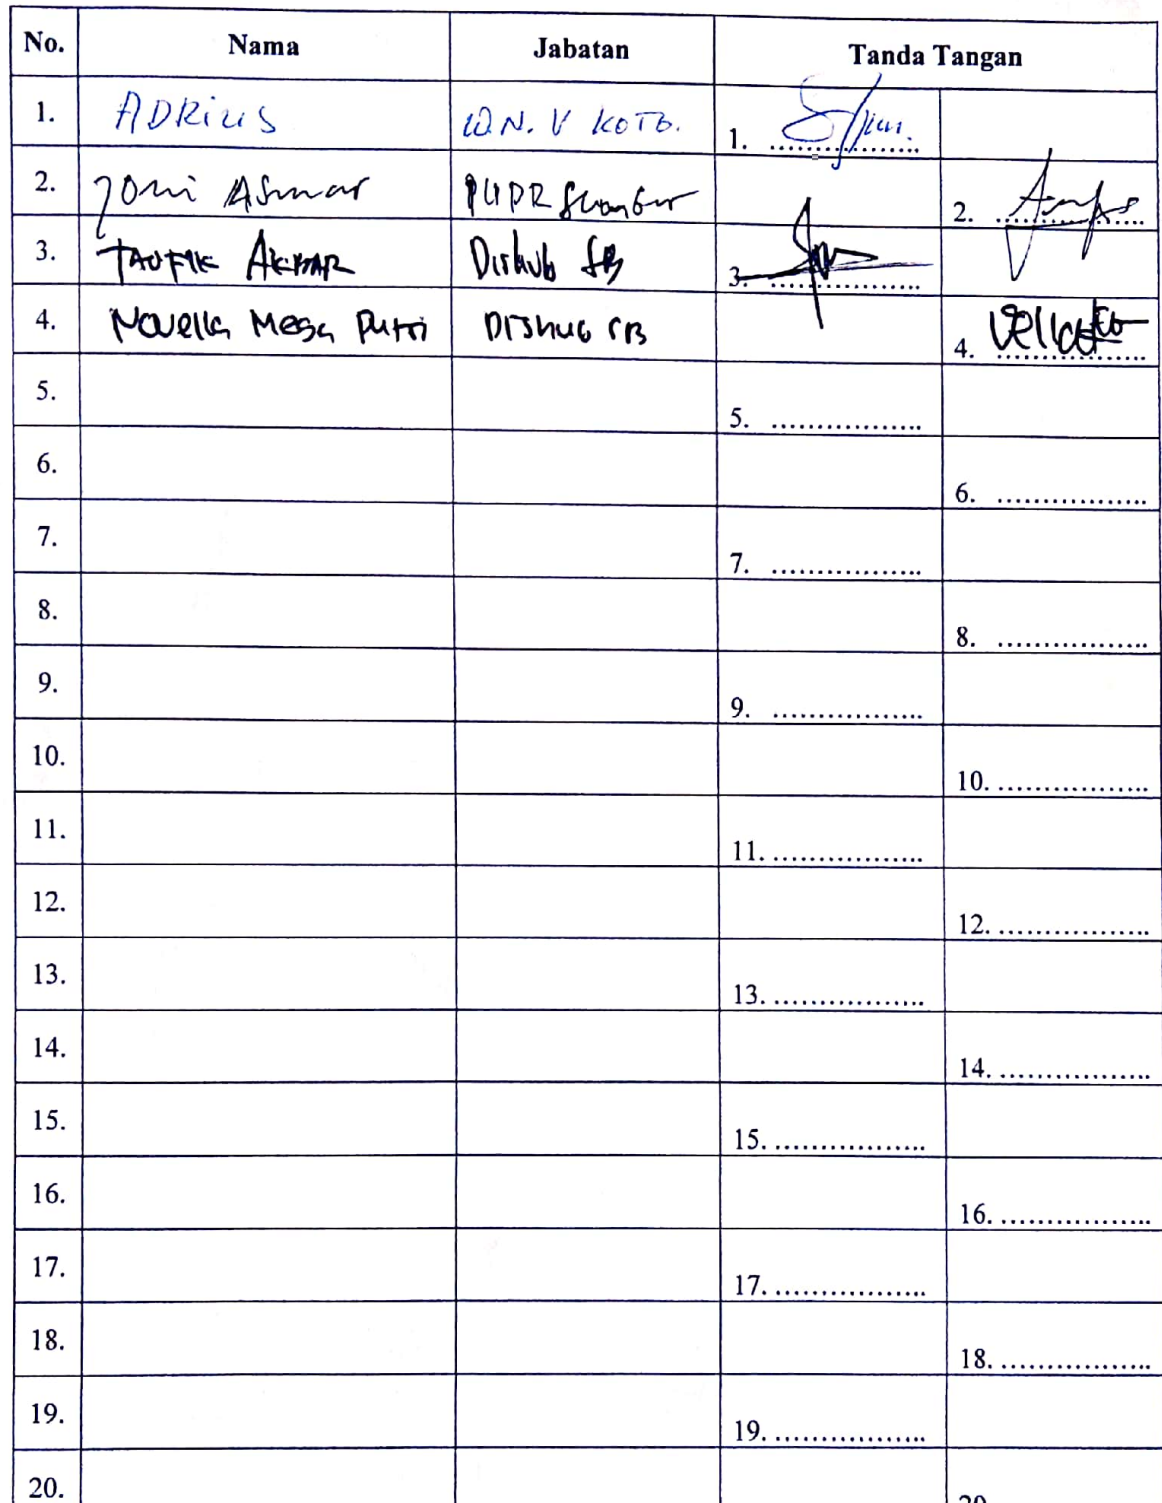 No. Nama Jabatan Tanda Tangan
1. ADRIUS W.N. V KOTO. 1. ..................
2. Joni Asmar PUPR 2. ..................
3. TAUFIK AKBAR Dishub SB 3. ..................
4. Novella Mega Putri Dishub SB 4. ..................
5. 5. ..................
6. 6. ..................
7. 7. ..................
8. 8. ..................
9. 9. ..................
10. 10. ..................
11. 11. ..................
12. 12. ..................
13. 13. ..................
14. 14. ..................
15. 15. ..................
16. 16. ..................
17. 17. ..................
18. 18. ..................
19. 19. ..................
20. 20